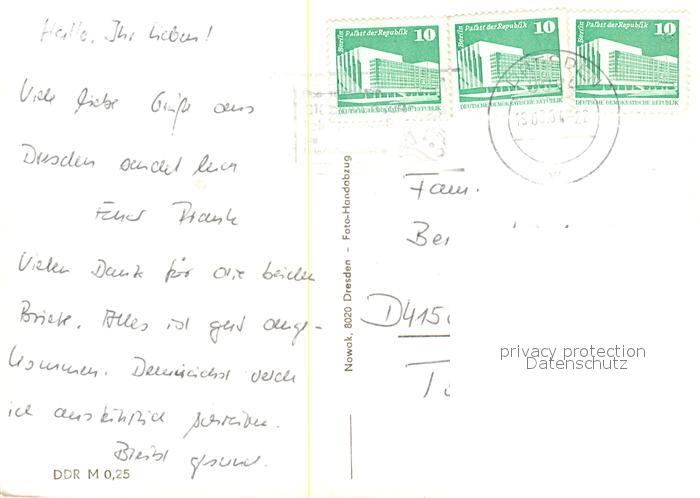 Hallo, Ihr Lieben!
Viele liebe Grüße aus
Dresden sendet Euch
Euer Frank
Vielen Dank für die beiden
Briefe. Alles ist gut ange-
kommen. Demnächst werde
ich ausführlich schreiben.
Bleibt gesund.
DDR M 0,25
Nowak, 8020 Dresden - Foto-Handabzug
Berlin Palast der Republik 10
DEUTSCHE DEMOKRATISCHE REPUBLIK
Berlin Palast der Republik 10
DEUTSCHE DEMOKRATISCHE REPUBLIK
Berlin Palast der Republik 10
DEUTSCHE DEMOKRATISCHE REPUBLIK
DRESDEN
Fam.
Be
D415
privacy protection
Datenschutz